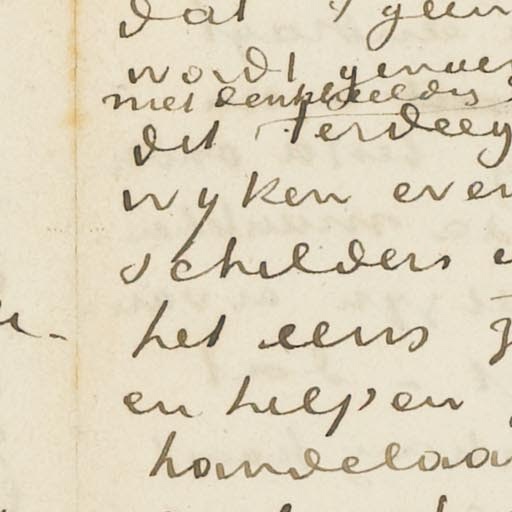 dat 't geen
wordt
met denkbeeldig
dit Terdeeg
wyken even
schilders e
het eens z
en helpen
handelaar